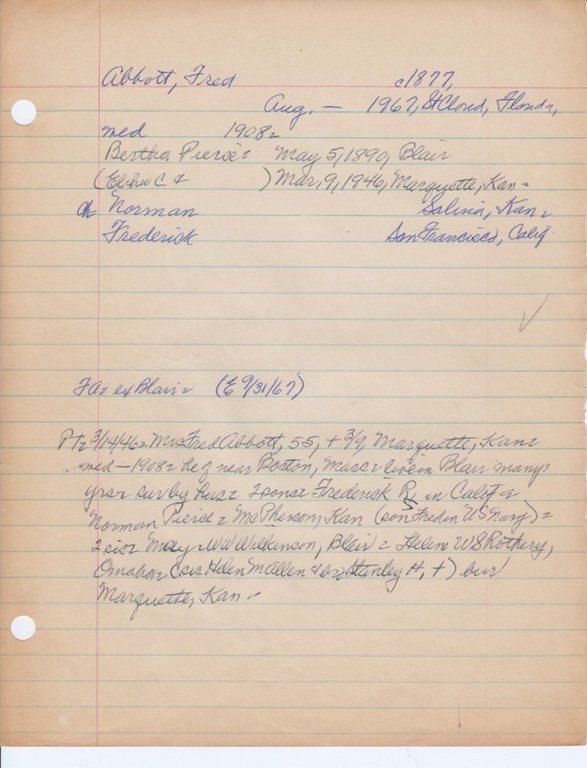 Abbott, Fred c1877,
Aug. — 1967, St Cloud, Florida,
med 1908=
Bertha Pierce= May 5, 1890, Blair
(Elihu C & ) Mar, 9, 1946, Marquette, Kan=
ch Norman Salina, Kan=
Frederick San Francisco, Calif.
FA= ex Blair= (E 9/31/67)
3/14/46= Mrs Fred Abbott, 55, + 3/9, Marquette, Kan=
med — 1908= he of near Boston, Mass= live in Blair many
yrs= sur by hus= 2 sons= Frederick R, in Calif &
Norman Pierce= McPherson, Kan (son Fred in US Navy)=
2 sis= May= WW Wilkinson, Blair= Helen= WS Rothery,
Omaha= (sis Helen M Allen & bro Stanley H, +) bur
Marquette, Kan=